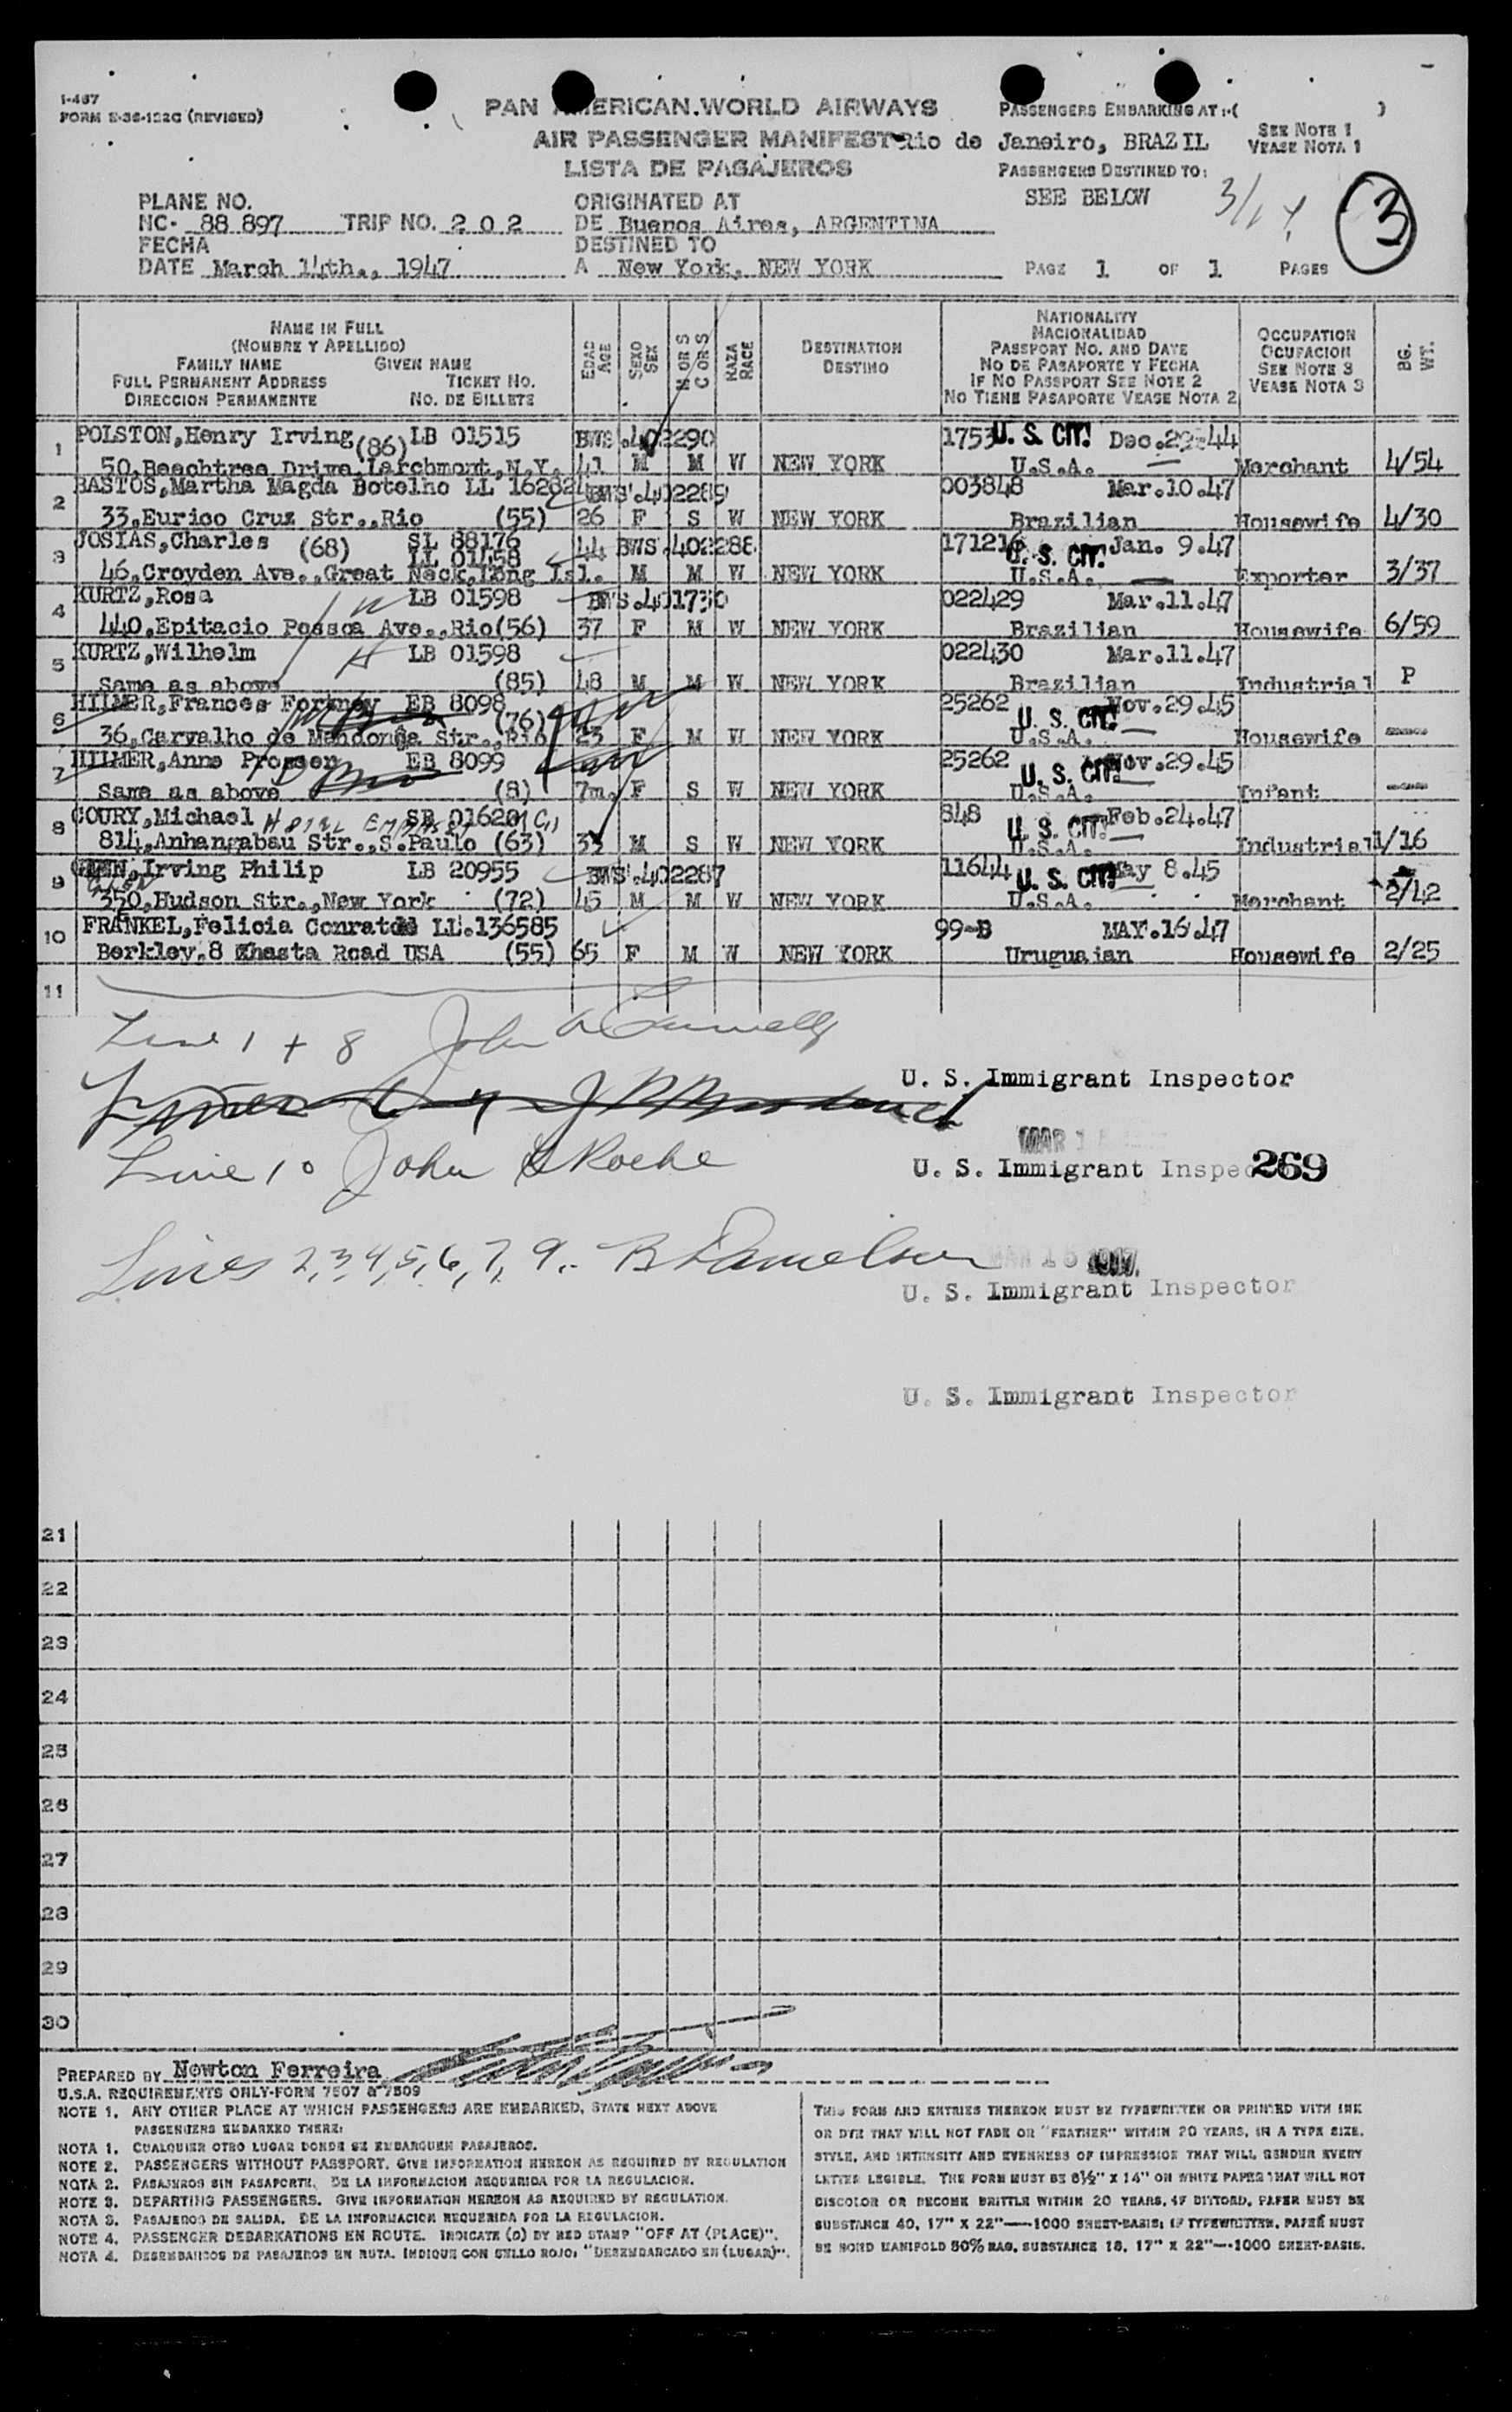 I-487
FORM E-36-122G (REVISED)
PAN AMERICAN WORLD AIRWAYS
AIR PASSENGER MANIFEST
LISTA DE PASAJEROS
PASSENGERS EMBARKING AT:-( )
Rio de Janeiro, BRAZIL
SEE NOTE 1
VEASE NOTA 1
PASSENGERS DESTINED TO:
SEE BELOW
3
PLANE NO.
NC- 88 897 TRIP NO. 2 0 2
FECHA
DATE March 14th., 1947
ORIGINATED AT
DE Buenos Aires, ARGENTINA
DESTINED TO
A New York, NEW YORK
PAGE 1 OF 1 PAGES
NAME IN FULL
(NOMBRE Y APELLIDO)
FAMILY NAME GIVEN NAME
FULL PERMANENT ADDRESS TICKET NO.
DIRECCION PERMANENTE NO. DE BILLETE
EDAD AGE
SEXO SEX
M OR S
C OR S
RAZA RACE
DESTINATION
DESTINO
NATIONALITY
NACIONALIDAD
PASSPORT NO. AND DATE
NO DE PASAPORTE Y FECHA
IF NO PASSPORT SEE NOTE 2
NO TIENE PASAPORTE VEASE NOTA 2
OCCUPATION
OCUPACION
SEE NOTE 3
VEASE NOTA 3
BG. WT.
1 POLSTON, Henry Irving (86) LB 01515 BWS.402290 1753 U. S. CIT. Dec.29.44
50, Beechtree Drive, Larchmont, N.Y. 41 M M W NEW YORK U.S.A. Merchant 4/54
2 BASTOS, Martha Magda Botelho LL 162824 BWS.402289 003848 Mar.10.47
33, Eurico Cruz Str., Rio (55) 26 F S W NEW YORK Brazilian Housewife 4/30
3 JOSIAS, Charles (68) SL 88176 LL 01458 44 BWS.402288 171216 U. S. CIT. Jan. 9.47
46, Croyden Ave., Great Neck, Long Isl. M M W NEW YORK U.S.A. Exporter 3/37
4 KURTZ, Rosa LB 01598 BWS.401730 022429 Mar.11.47
440, Epitacio Pessoa Ave., Rio (56) 37 F M W NEW YORK Brazilian Housewife 6/59
5 KURTZ, Wilhelm LB 01598 022430 Mar.11.47
Same as above (85) 48 M M W NEW YORK Brazilian Industrial P
6 HILMER, Frances Fortney EB 8098 25262 U. S. CIT. Nov.29.45
36, Carvalho de Mendonça Str., Rio (76) 23 F M W NEW YORK U.S.A. Housewife
7 HILMER, Anne Prossen EB 8099 25262 U. S. CIT. Nov.29.45
Same as above (8) 7m. F S W NEW YORK U.S.A. Infant
8 COURY, Michael SB 01620 848 U. S. CIT. Feb.24.47
814, Anhangabau Str., S.Paulo (63) 33 M S W NEW YORK U.S.A. Industrial 1/16
9 GLEN, Irving Philip LB 20955 BWS.402287 11644 U. S. CIT. May 8.45
350, Hudson Str., New York (72) 45 M M W NEW YORK U.S.A. Merchant 2/42
10 FRANKEL, Felicia Conrat LL.136585 99-B MAY.16.47
Berkley, 8 Shasta Road USA (55) 65 F M W NEW YORK Uruguaian Housewife 2/25
11
Line 1 + 8 John Donnelly
U. S. Immigrant Inspector
Line 10 John Roche
U. S. Immigrant Inspec
269
Lines 2,3,4,5,6,7,9. B Danielson
MAR 15 1947
U. S. Immigrant Inspector
U. S. Immigrant Inspector
21
22
23
24
25
26
27
28
29
30
PREPARED BY Newton Ferreira
U.S.A. REQUIREMENTS ONLY-FORM 7507 & 7509
NOTE 1. ANY OTHER PLACE AT WHICH PASSENGERS ARE EMBARKED, STATE NEXT ABOVE
PASSENGERS EMBARKED THERE:
NOTA 1. CUALQUIER OTRO LUGAR DONDE SE EMBARQUEN PASAJEROS.
NOTE 2. PASSENGERS WITHOUT PASSPORT. GIVE INFORMATION HEREON AS REQUIRED BY REGULATION
NOTA 2. PASAJEROS SIN PASAPORTE. DE LA INFORMACION REQUERIDA POR LA REGULACION.
NOTE 3. DEPARTING PASSENGERS. GIVE INFORMATION HEREON AS REQUIRED BY REGULATION.
NOTA 3. PASAJEROS DE SALIDA. DE LA INFORMACION REQUERIDA POR LA REGULACION.
NOTE 4. PASSENGER DEBARKATIONS EN ROUTE. INDICATE (D) BY RED STAMP "OFF AT (PLACE)".
NOTA 4. DESEMBARCOS DE PASAJEROS EN RUTA. INDIQUE CON SELLO ROJO: "DESEMBARCADO EN (LUGAR)".
THIS FORM AND ENTRIES THEREON MUST BE TYPEWRITTEN OR PRINTED WITH INK
OR DYE THAT WILL NOT FADE OR "FEATHER" WITHIN 20 YEARS, IN A TYPE SIZE,
STYLE, AND INTENSITY AND EVENNESS OF IMPRESSION THAT WILL RENDER EVERY
LETTER LEGIBLE. THE FORM MUST BE 8½" X 14" ON WHITE PAPER THAT WILL NOT
DISCOLOR OR BECOME BRITTLE WITHIN 20 YEARS. IF DITTOED, PAPER MUST BE
SUBSTANCE 40, 17" X 22"—1000 SHEET-BASIS; IF TYPEWRITTEN, PAPER MUST
BE BOND MANIFOLD 50% RAG, SUBSTANCE 18, 17" X 22"—1000 SHEET-BASIS.